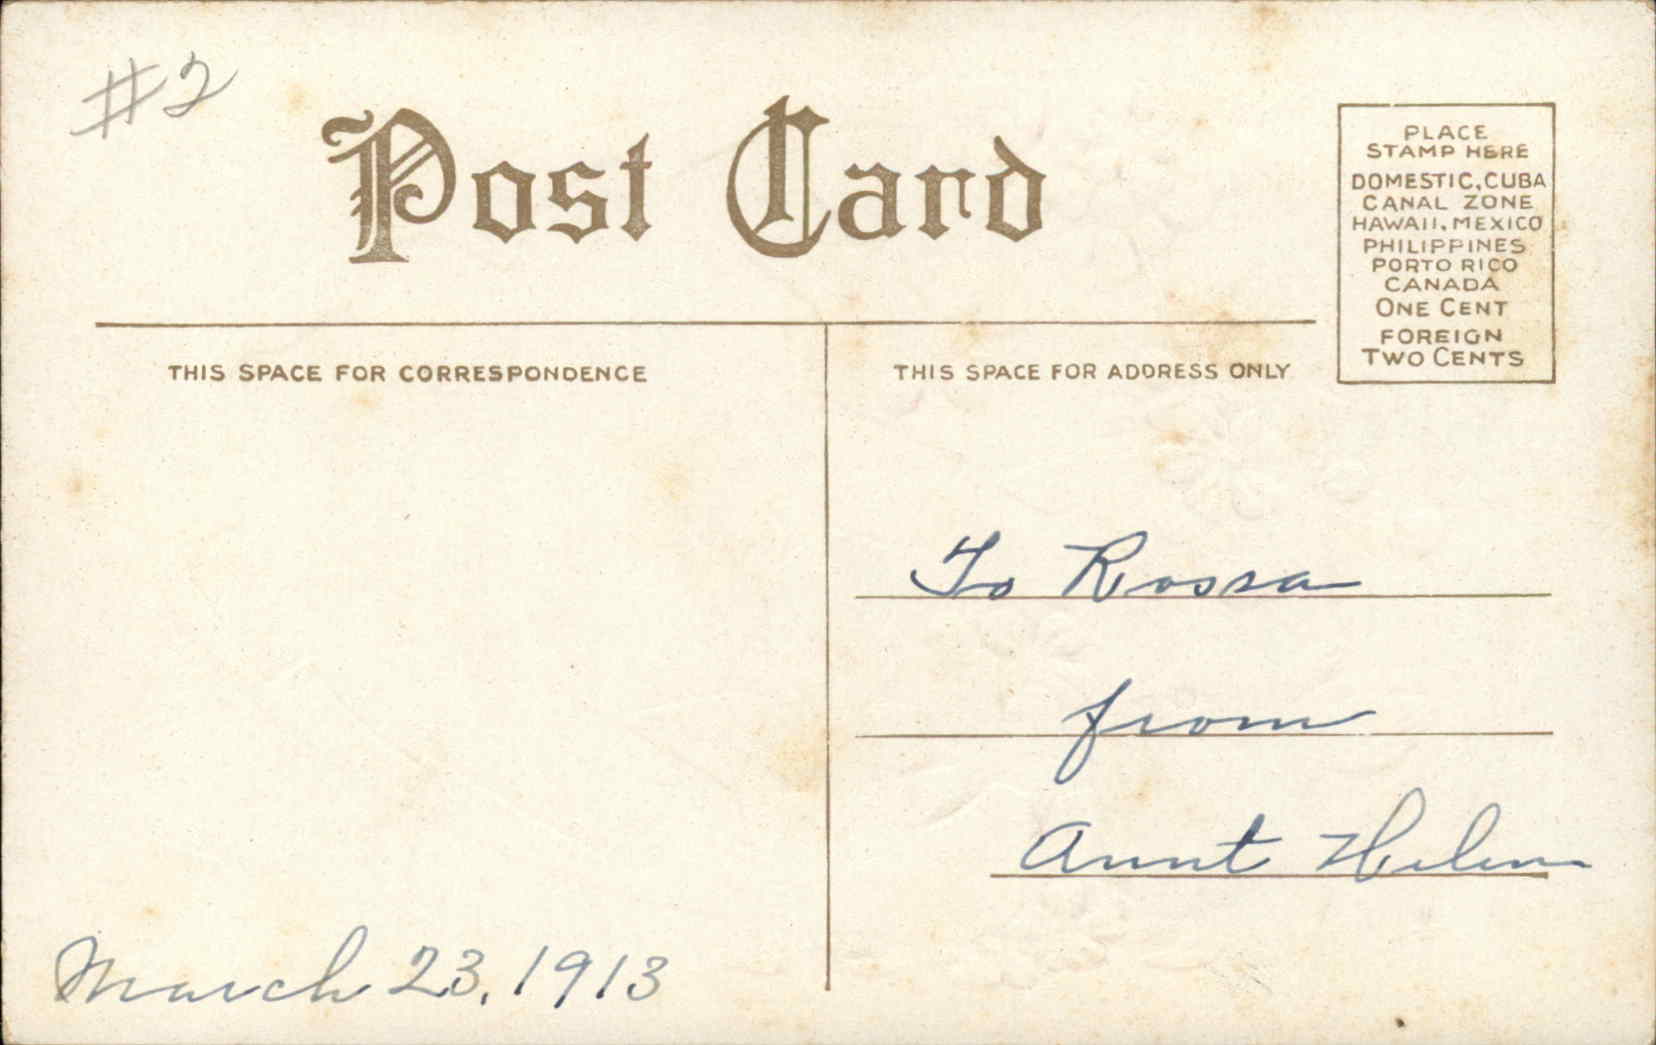 #2
Post Card
PLACE
STAMP HERE
DOMESTIC, CUBA
CANAL ZONE
HAWAII, MEXICO
PHILIPPINES
PORTO RICO
CANADA
ONE CENT
FOREIGN
TWO CENTS
THIS SPACE FOR CORRESPONDENCE
THIS SPACE FOR ADDRESS ONLY
To Rossa
from
Aunt Helen
March 23, 1913